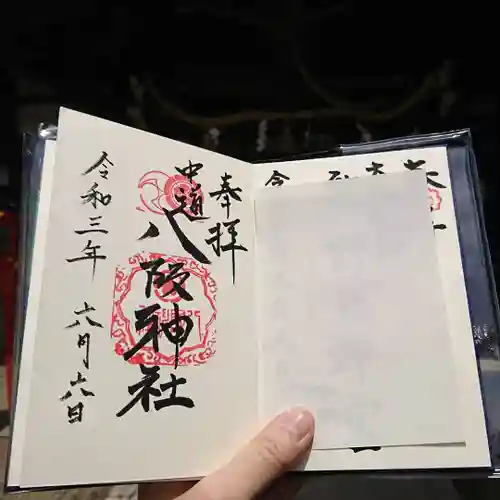 奉拝
中道
八阪神社
令和三年
六月六日